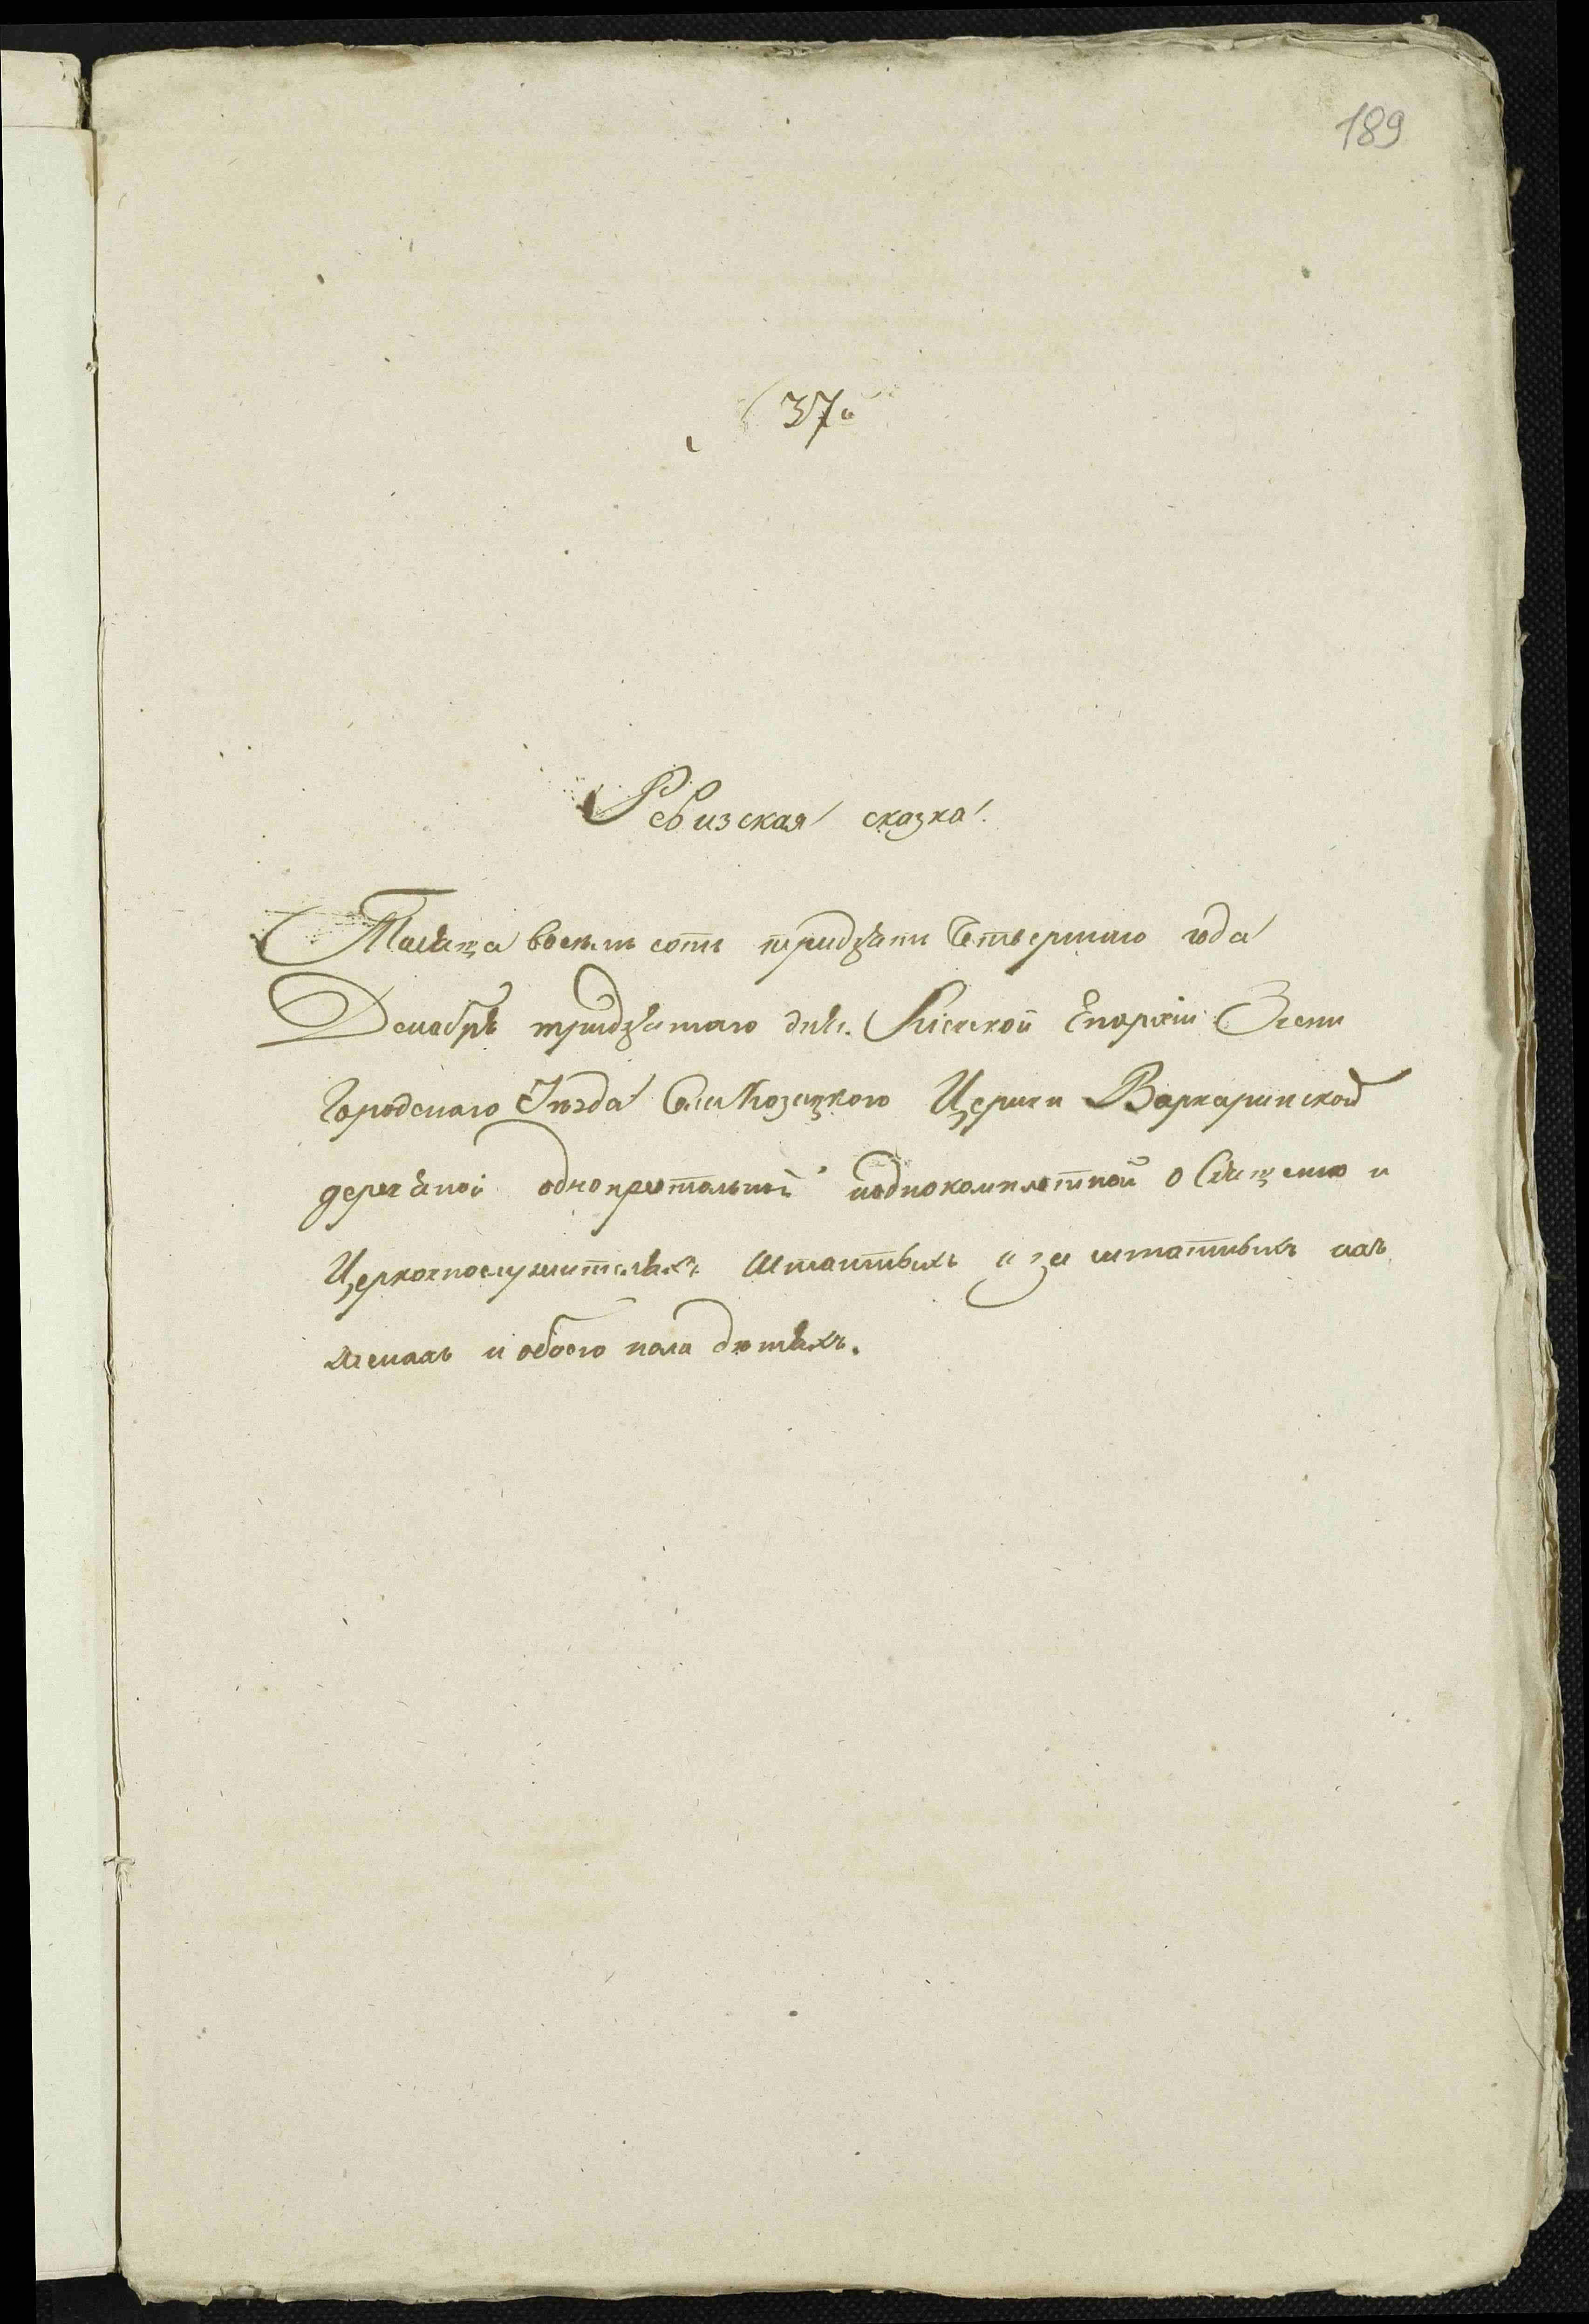 189
37й
Ревизская сказка.
Тысяща восемь сотъ тридцати четвертаго года
Декабря тридцятаго дня. Кіевской Епархіи Звени
городскаго Уѣзда Села Козацкого Церкви Варваринской
деревяной однопрестольной иоднокомплетной о Священно и
Церковнослужителяхъ штатныхъ и за штатныхъ ихъ
женахъ и обоего пола дѣтяхъ.